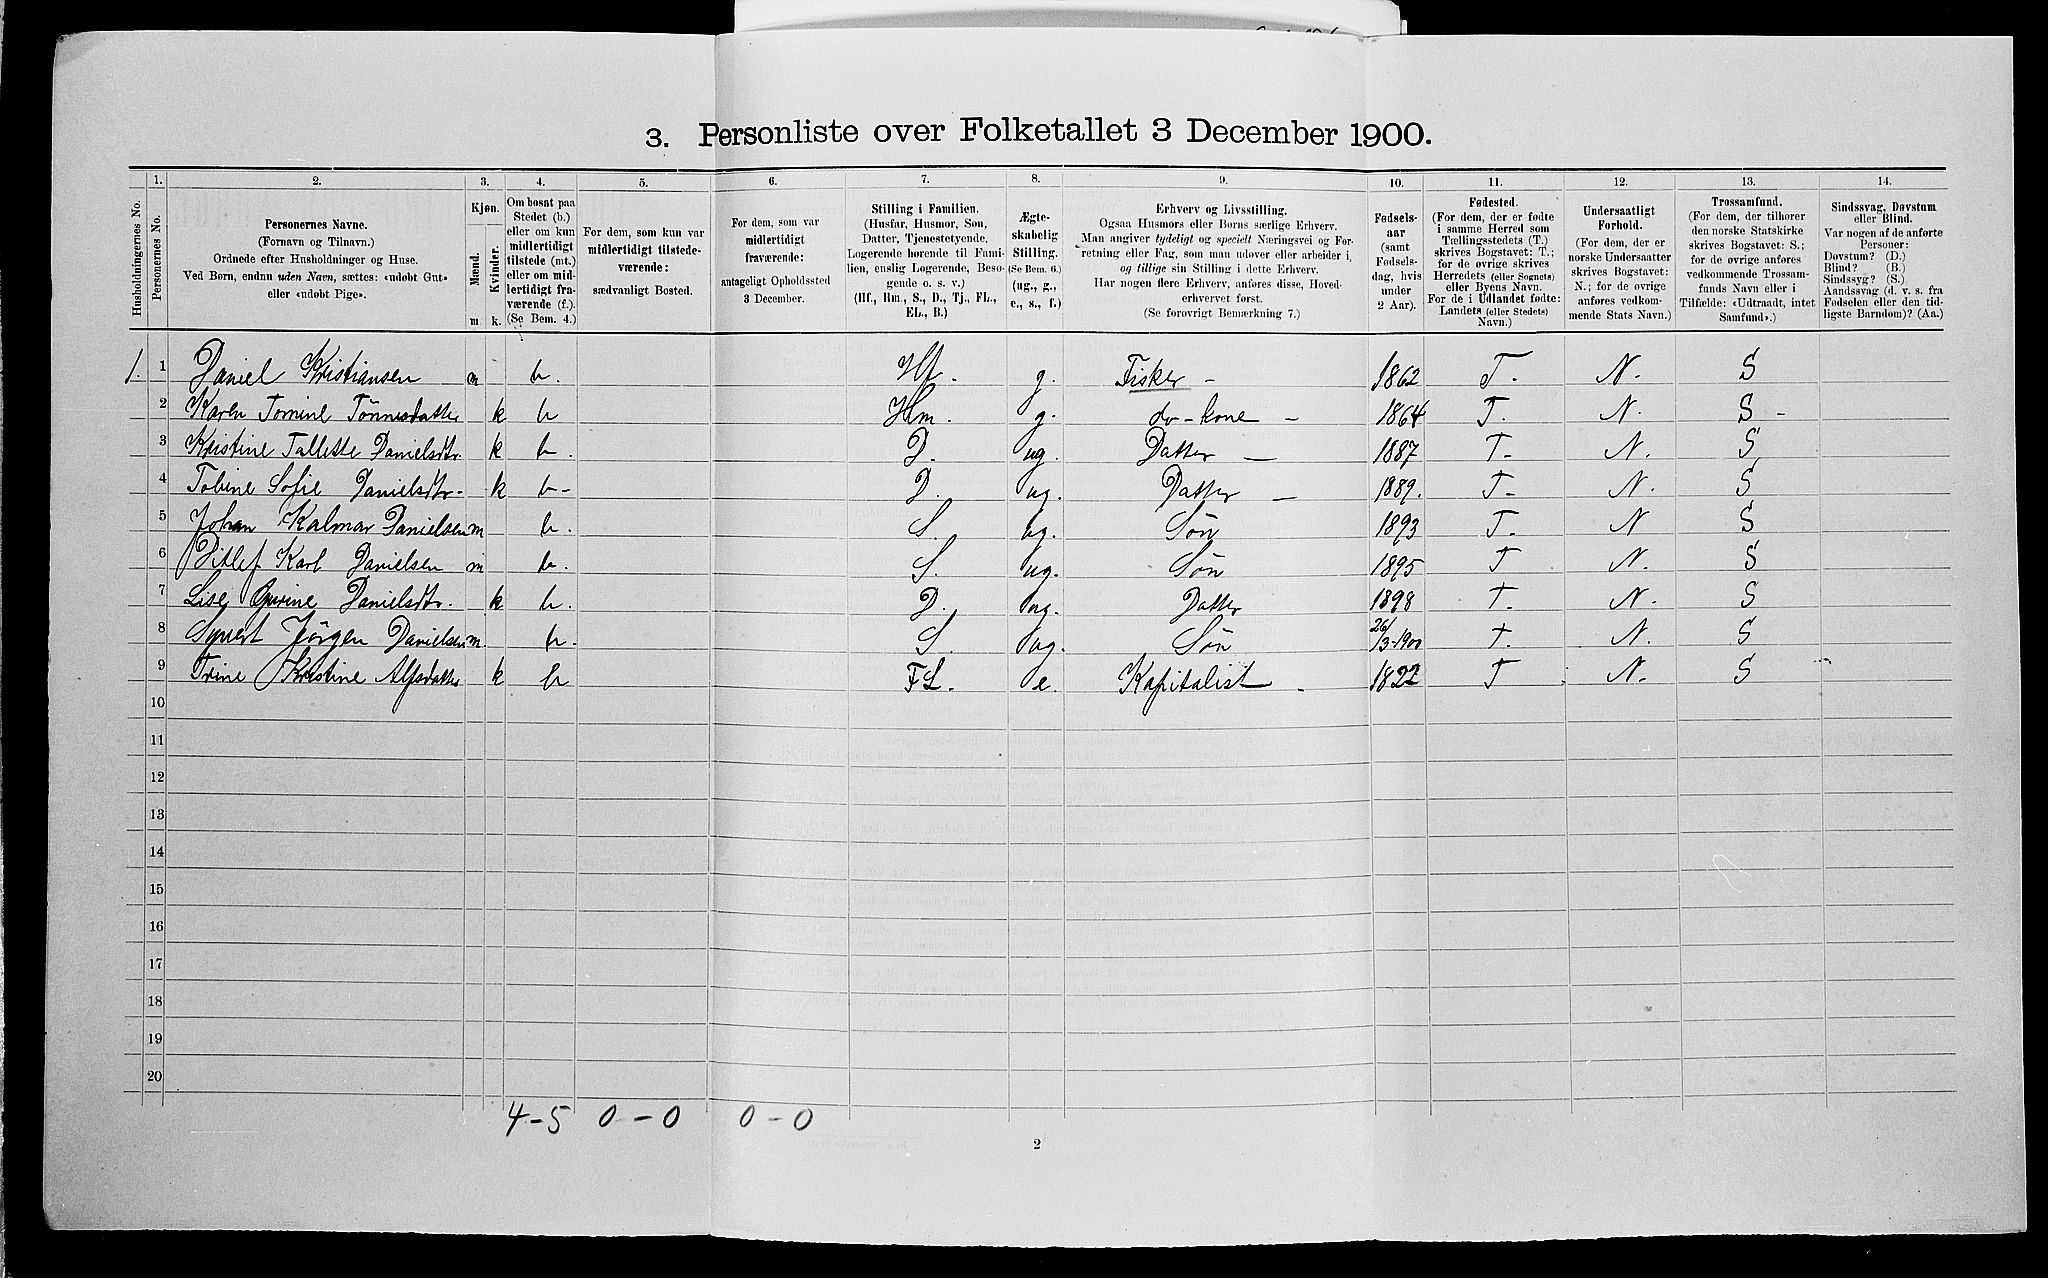 3. Personliste over Folketallet 3 December 1900.
Husholdningernes No.
1. Personernes No.
2. Personernes Navne.
(Fornavn og Tilnavn.)
Ordnede efter Husholdninger og Huse.
Ved Børn, endnu uden Navn, sættes: «udøbt Gut»
eller «udøbt Pige».
3. Kjøn.
Mænd. Kvinder.
m k.
4.
Om bosat paa
Stedet (b.)
eller om kun
midlertidigt
tilstede (mt.)
eller om mid-
lertidigt fra-
værende (f.).
(Se Bem. 4.)
5.
For dem, som kun var
midlertidigt tilstede-
værende:
sædvanligt Bosted.
6.
For dem, som var
midlertidigt
fraværende:
antageligt Opholdssted
3 December.
7.
Stilling i Familien.
(Husfar, Husmor, Søn,
Datter, Tjenestetyende,
Logerende hørende til Fami-
lien, enslig Logerende, Besø-
gende o. s. v.)
(Hf., Hm., S., D., Tj., FL.,
EL., B.)
8.
Ægte-
skabelig
Stilling.
(Se Bem. 6.)
(ug., g.,
e., s., f.)
9.
Erhverv og Livsstilling.
Ogsaa Husmors eller Børns særlige Erhverv.
Man angiver tydeligt og specielt Næringsvei og For-
retning eller Fag, som man udøver eller arbeider i,
og tillige sin Stilling i dette Erhverv.
Har nogen flere Erhverv, anføres disse, Hoved-
erhvervet først.
(Se forøvrigt Bemærkning 7.)
10.
Fødsels-
aar
(samt
Fødsels-
dag, hvis
under
2 Aar).
11.
Fødested.
(For dem, der er fødte
i samme Herred som
Tællingsstedets (T.)
skrives Bogstavet: T.;
for de øvrige skrives
Herredets (eller Sognets)
eller Byens Navn.
For de i Udlandet fødte:
Landets (eller Stedets)
Navn.)
12.
Undersaatligt
Forhold.
(For dem, der er
norske Undersaatter
skrives Bogstavet:
N.; for de øvrige
anføres vedkom-
mende Stats Navn.)
13.
Trossamfund.
(For dem, der tilhører
den norske Statskirke
skrives Bogstavet: S.;
for de øvrige anføres
vedkommende Trossam-
funds Navn eller i
Tilfælde: «Udtraadt, intet
Samfund».)
14.
Sindssvag, Døvstum
eller Blind.
Var nogen af de anførte
Personer:
Døvstum? (D.)
Blind? (B.)
Sindssyg? (S.)
Aandssvag (d. v. s. fra
Fødselen eller den tid-
ligste Barndom)? (Aa.)
1. 1 Daniel Kristiansen m b. Hf. g. Fisker - 1862 T. N. S
2 Karen Tomine Tönnesdatter k b Hm. g. do - kone - 1864 T. N. S -
3 Kristine Tallette Danielsdtr. k b. D. ug. Datter - 1887 T. N. S
4 Tobine Sofie Danielsdtr. k b- D. ug. Datter - 1889. T- N. S
5 Johan Kalmar Danielsen m b. S. ug. Søn 1893 T- N S
6 Ditlef Karl Danielsen m b. S. ug. Søn 1895 T N. S
7 Lise Danielsdtr. k b. D. ug. Datter 1898 T. N. S
8 Syvert Jörgen Danielsen m. b. S. ug. Søn 26/3-1900 T. N. S
9 Trine Kristine Alfsdatter k b FL. e. Kapitalist - 1822 T N. S
10
11
12
13
14
15
16
17
18
19
20
4-5 0-0 0-0
2